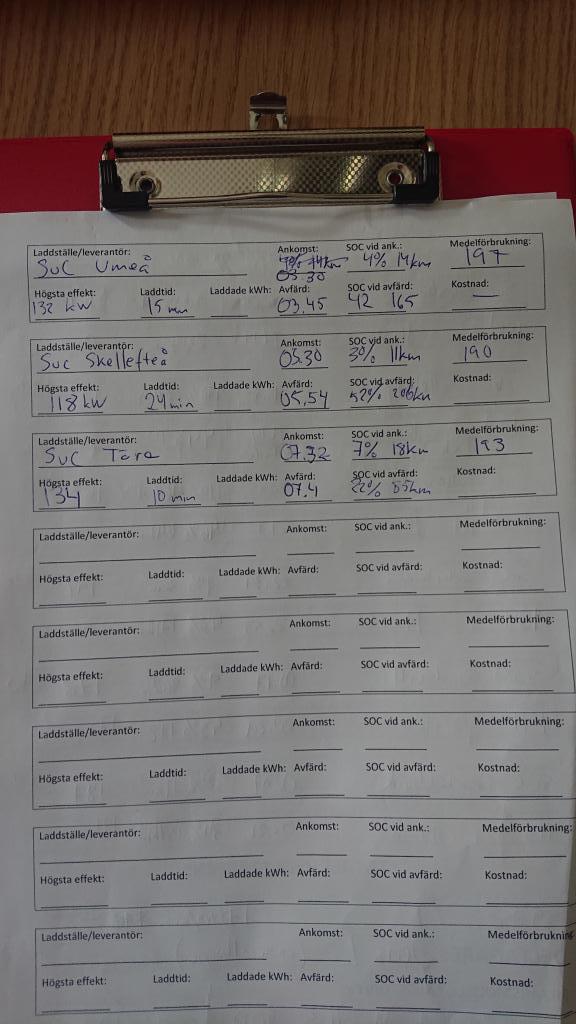 Laddställe/leverantör: Ankomst: SOC vid ank.: Medelförbrukning:
SuC Umeå 03 30 4% 14km 197
Högsta effekt: Laddtid: Laddade kWh: Avfärd: SOC vid avfärd: Kostnad:
132 kW 15 min 03.45 42 165 —
Laddställe/leverantör: Ankomst: SOC vid ank.: Medelförbrukning:
Suc Skellefteå 05.30 3% 11km 190
Högsta effekt: Laddtid: Laddade kWh: Avfärd: SOC vid avfärd: Kostnad:
118kW 24min 05,54 52% 206km
Laddställe/leverantör: Ankomst: SOC vid ank.: Medelförbrukning:
SuC Töre 07.32 7% 18km 193
Högsta effekt: Laddtid: Laddade kWh: Avfärd: SOC vid avfärd: Kostnad:
134 10 min 07.4 22% 85km
Laddställe/leverantör: Ankomst: SOC vid ank.: Medelförbrukning:
Högsta effekt: Laddtid: Laddade kWh: Avfärd: SOC vid avfärd: Kostnad:
Laddställe/leverantör: Ankomst: SOC vid ank.: Medelförbrukning:
Högsta effekt: Laddtid: Laddade kWh: Avfärd: SOC vid avfärd: Kostnad:
Laddställe/leverantör: Ankomst: SOC vid ank.: Medelförbrukning:
Högsta effekt: Laddtid: Laddade kWh: Avfärd: SOC vid avfärd: Kostnad:
Laddställe/leverantör: Ankomst: SOC vid ank.: Medelförbrukning:
Högsta effekt: Laddtid: Laddade kWh: Avfärd: SOC vid avfärd: Kostnad:
Laddställe/leverantör: Ankomst: SOC vid ank.: Medelförbrukning
Högsta effekt: Laddtid: Laddade kWh: Avfärd: SOC vid avfärd: Kostnad: